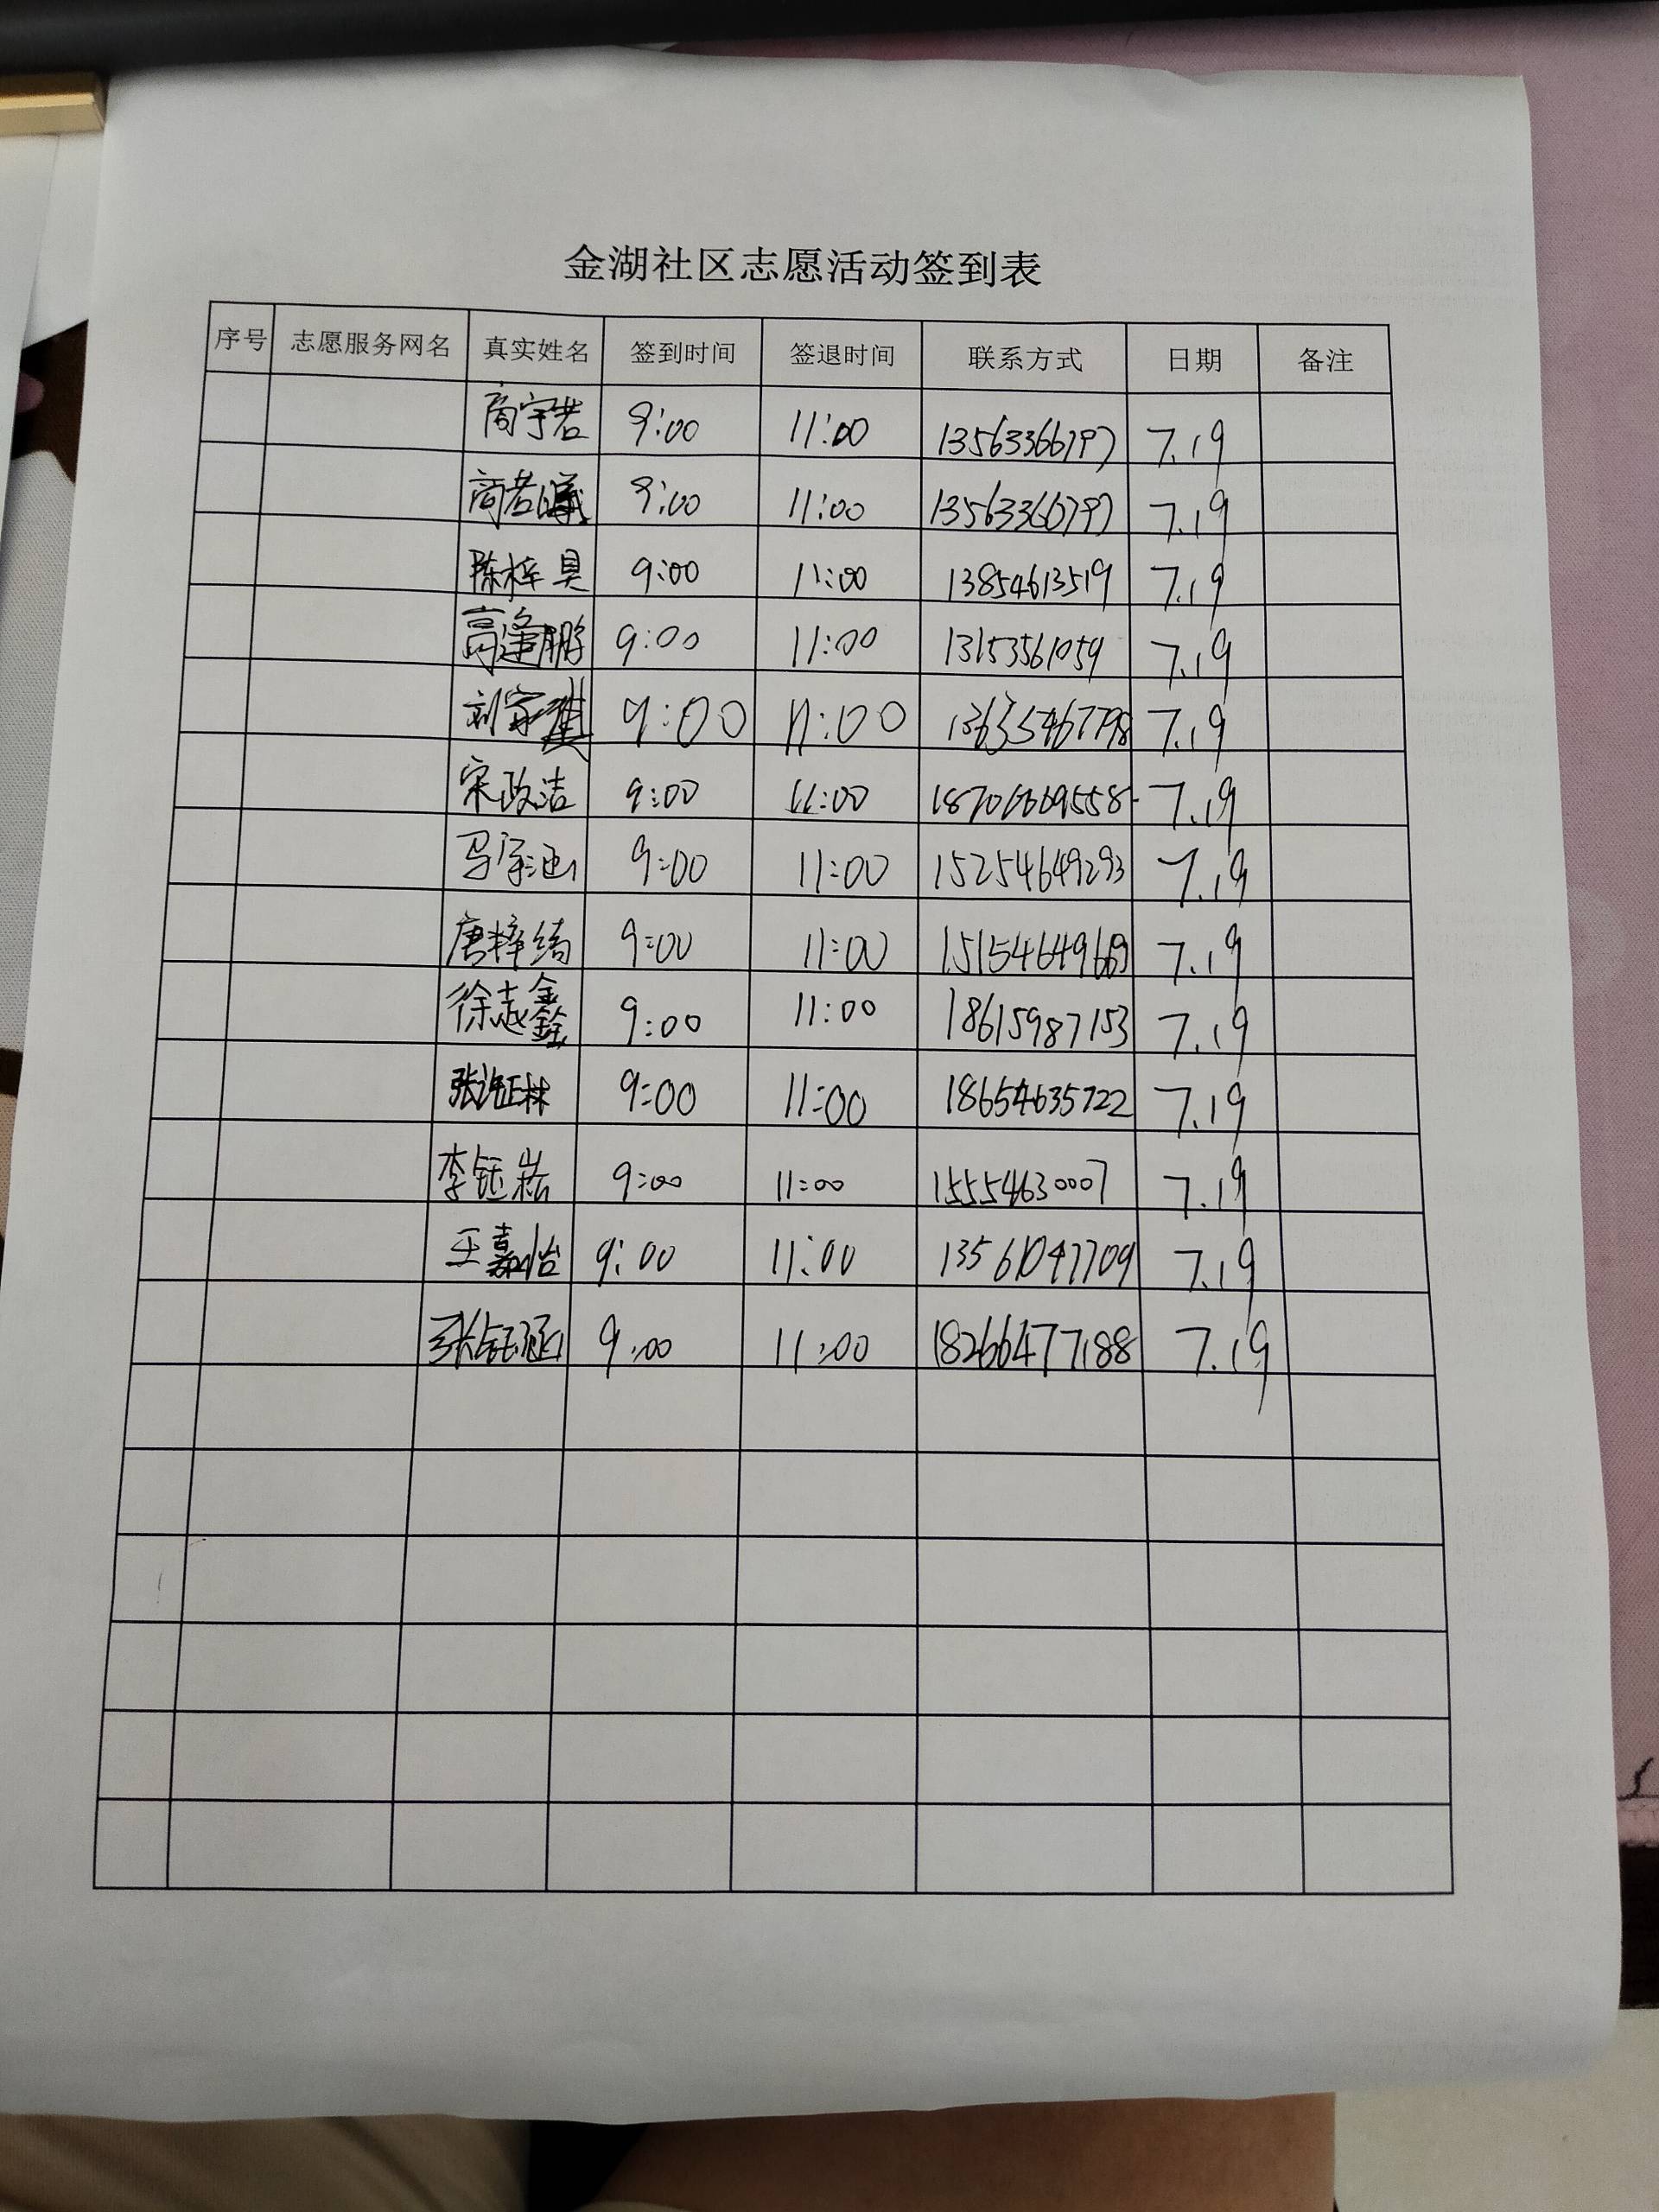 金湖社区志愿活动签到表
序号 志愿服务网名 真实姓名 签到时间 签退时间 联系方式 日期 备注
商宇若 9:00 11:00 13563366797 7.19
商若曦 9:00 11:00 13563366797 7.19
陈梓昊 9:00 11:00 13854613519 7.19
高逢鹏 9:00 11:00 13153561059 7.19
刘家 9:00 11:00 13635467798 7.19
宋政洁 9:00 11:00 7.19
马宇涵 9:00 11:00 15254649293 7.19
唐梓绮 9:00 11:00 7.19
徐志鑫 9:00 11:00 18615987153 7.19
张 林 9:00 11:00 18654635722 7.19
李钰崧 9:00 11:00 15554630007 7.19
王嘉怡 9:00 11:00 13561047709 7.19
张钰涵 9:00 11:00 18266477188 7.19